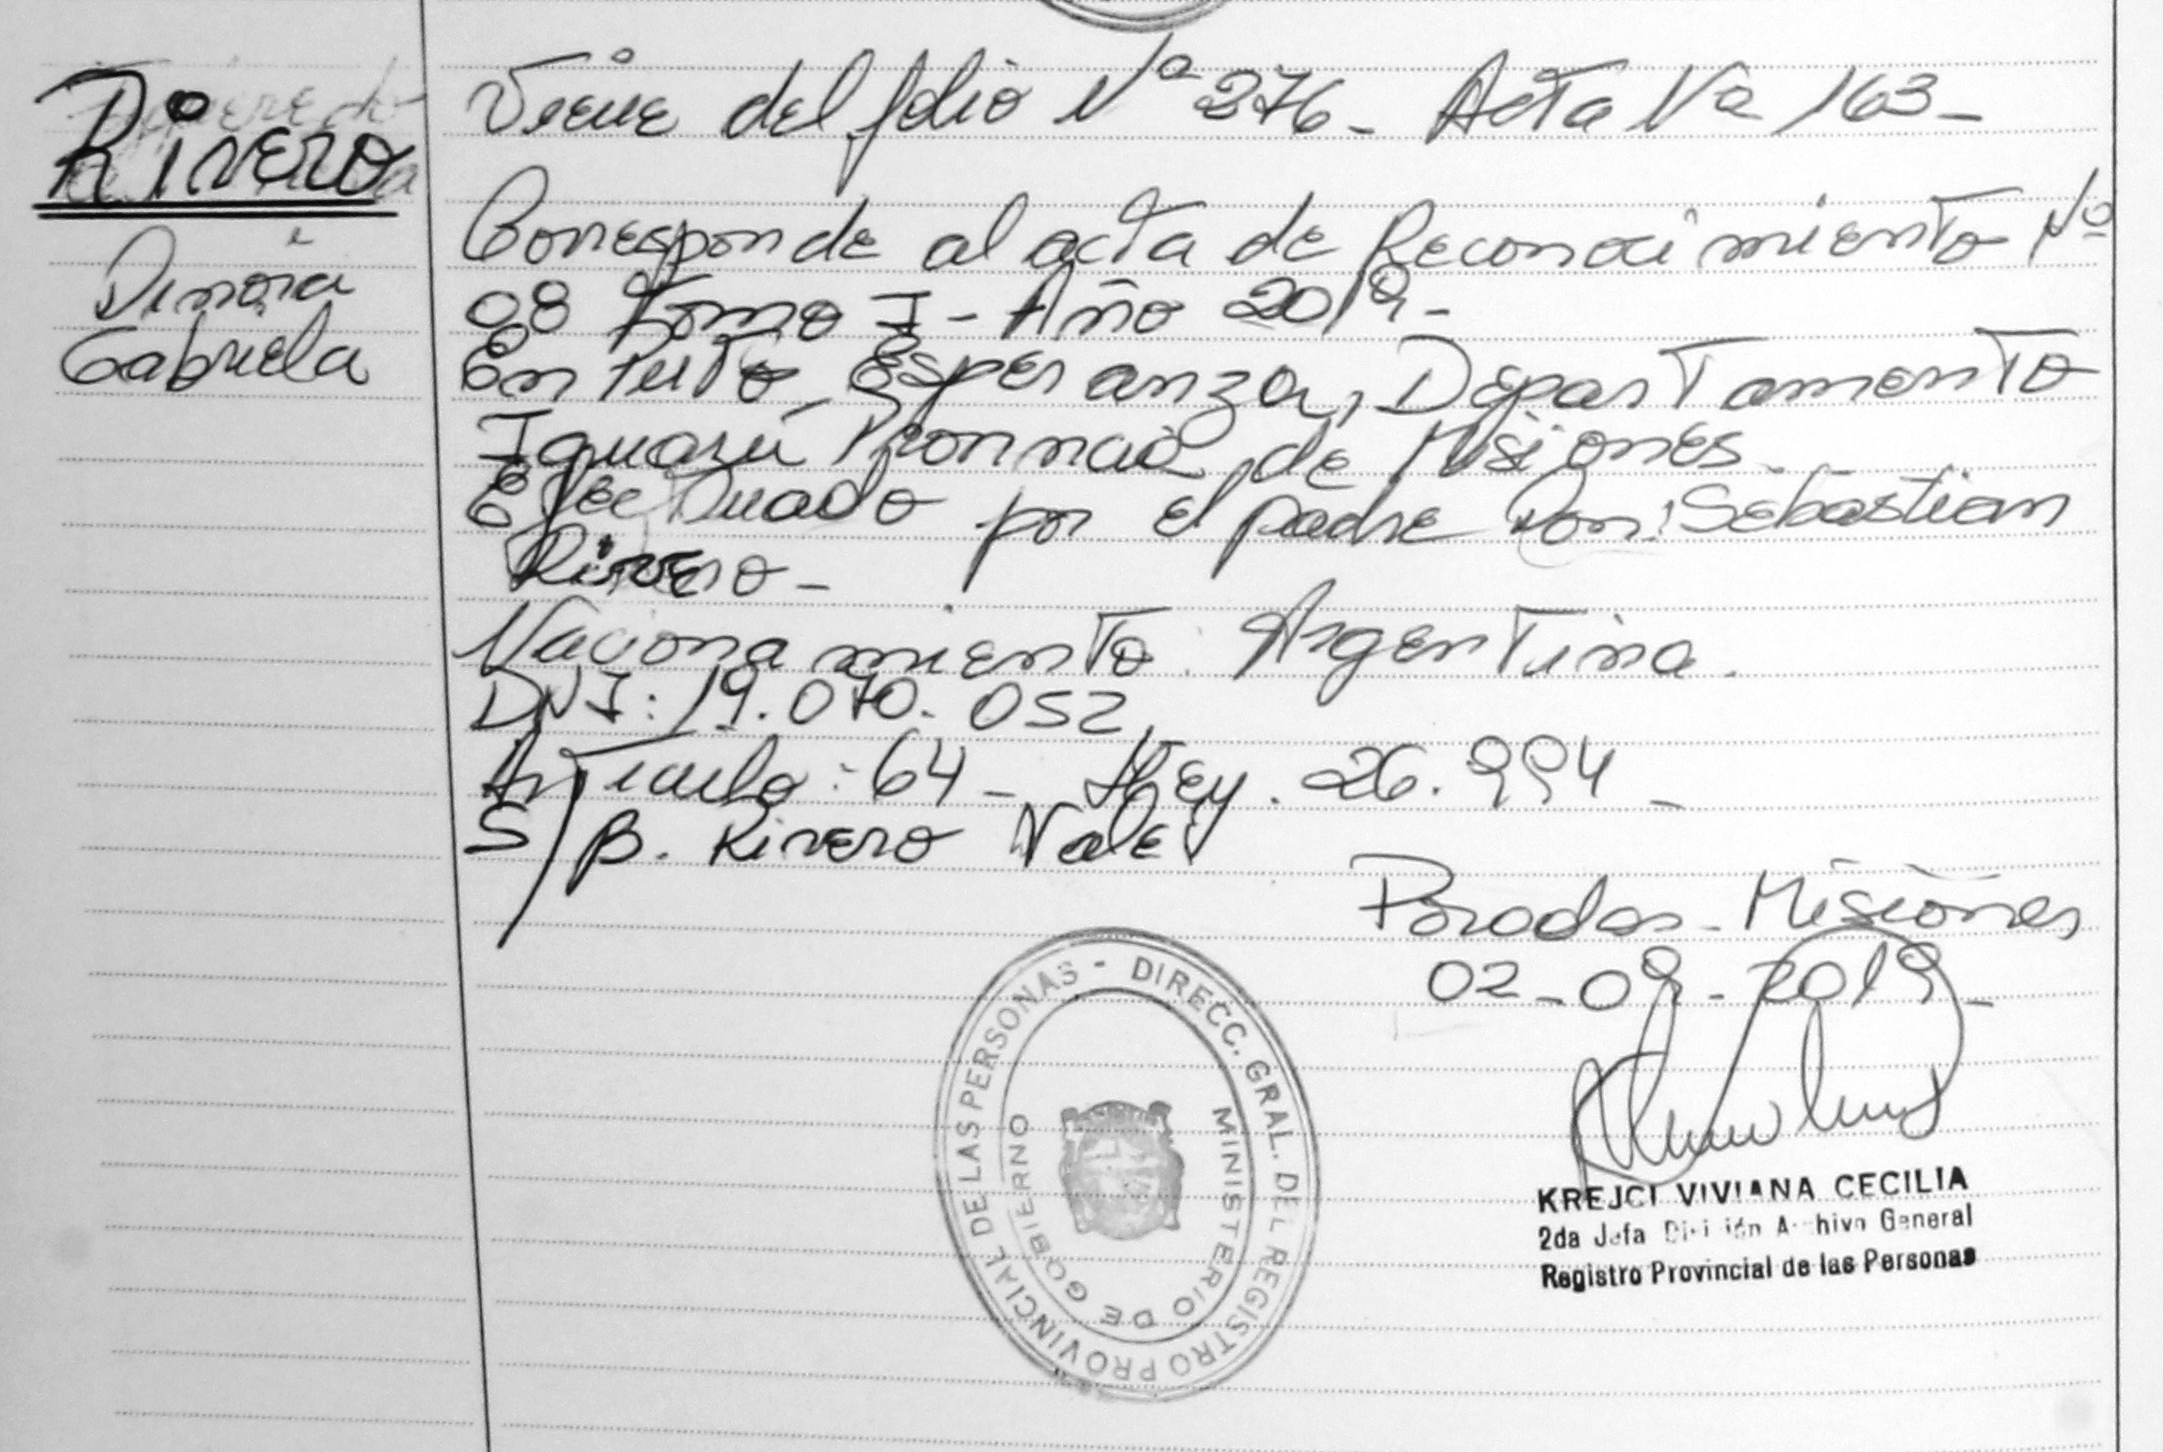 Rivero
Dinora
Gabriela
Viene del folio Nº 276. Acta Nº 163-
Corresponde al acta de Reconocimiento Nº
08 Tomo I - Año 2019-
En Puto. Esperanza, Departamento
Iguazú Provincia de Misiones.
Efectuado por el padre Don: Sebastian
Rivero-
Nacionamiento: Argentina.
DNI: 19.070.052
Articulo: 64 - Ley. 26.994-
S/B. Rivero Vale
Posadas - Misiones
02-09-2019-
DIRECC. GRAL. DEL REGISTRO PROVINCIAL DE LAS PERSONAS -
MINISTERIO DE GOBIERNO
KREJCI VIVIANA CECILIA
2da Jefa División Archivo General
Registro Provincial de las Personas